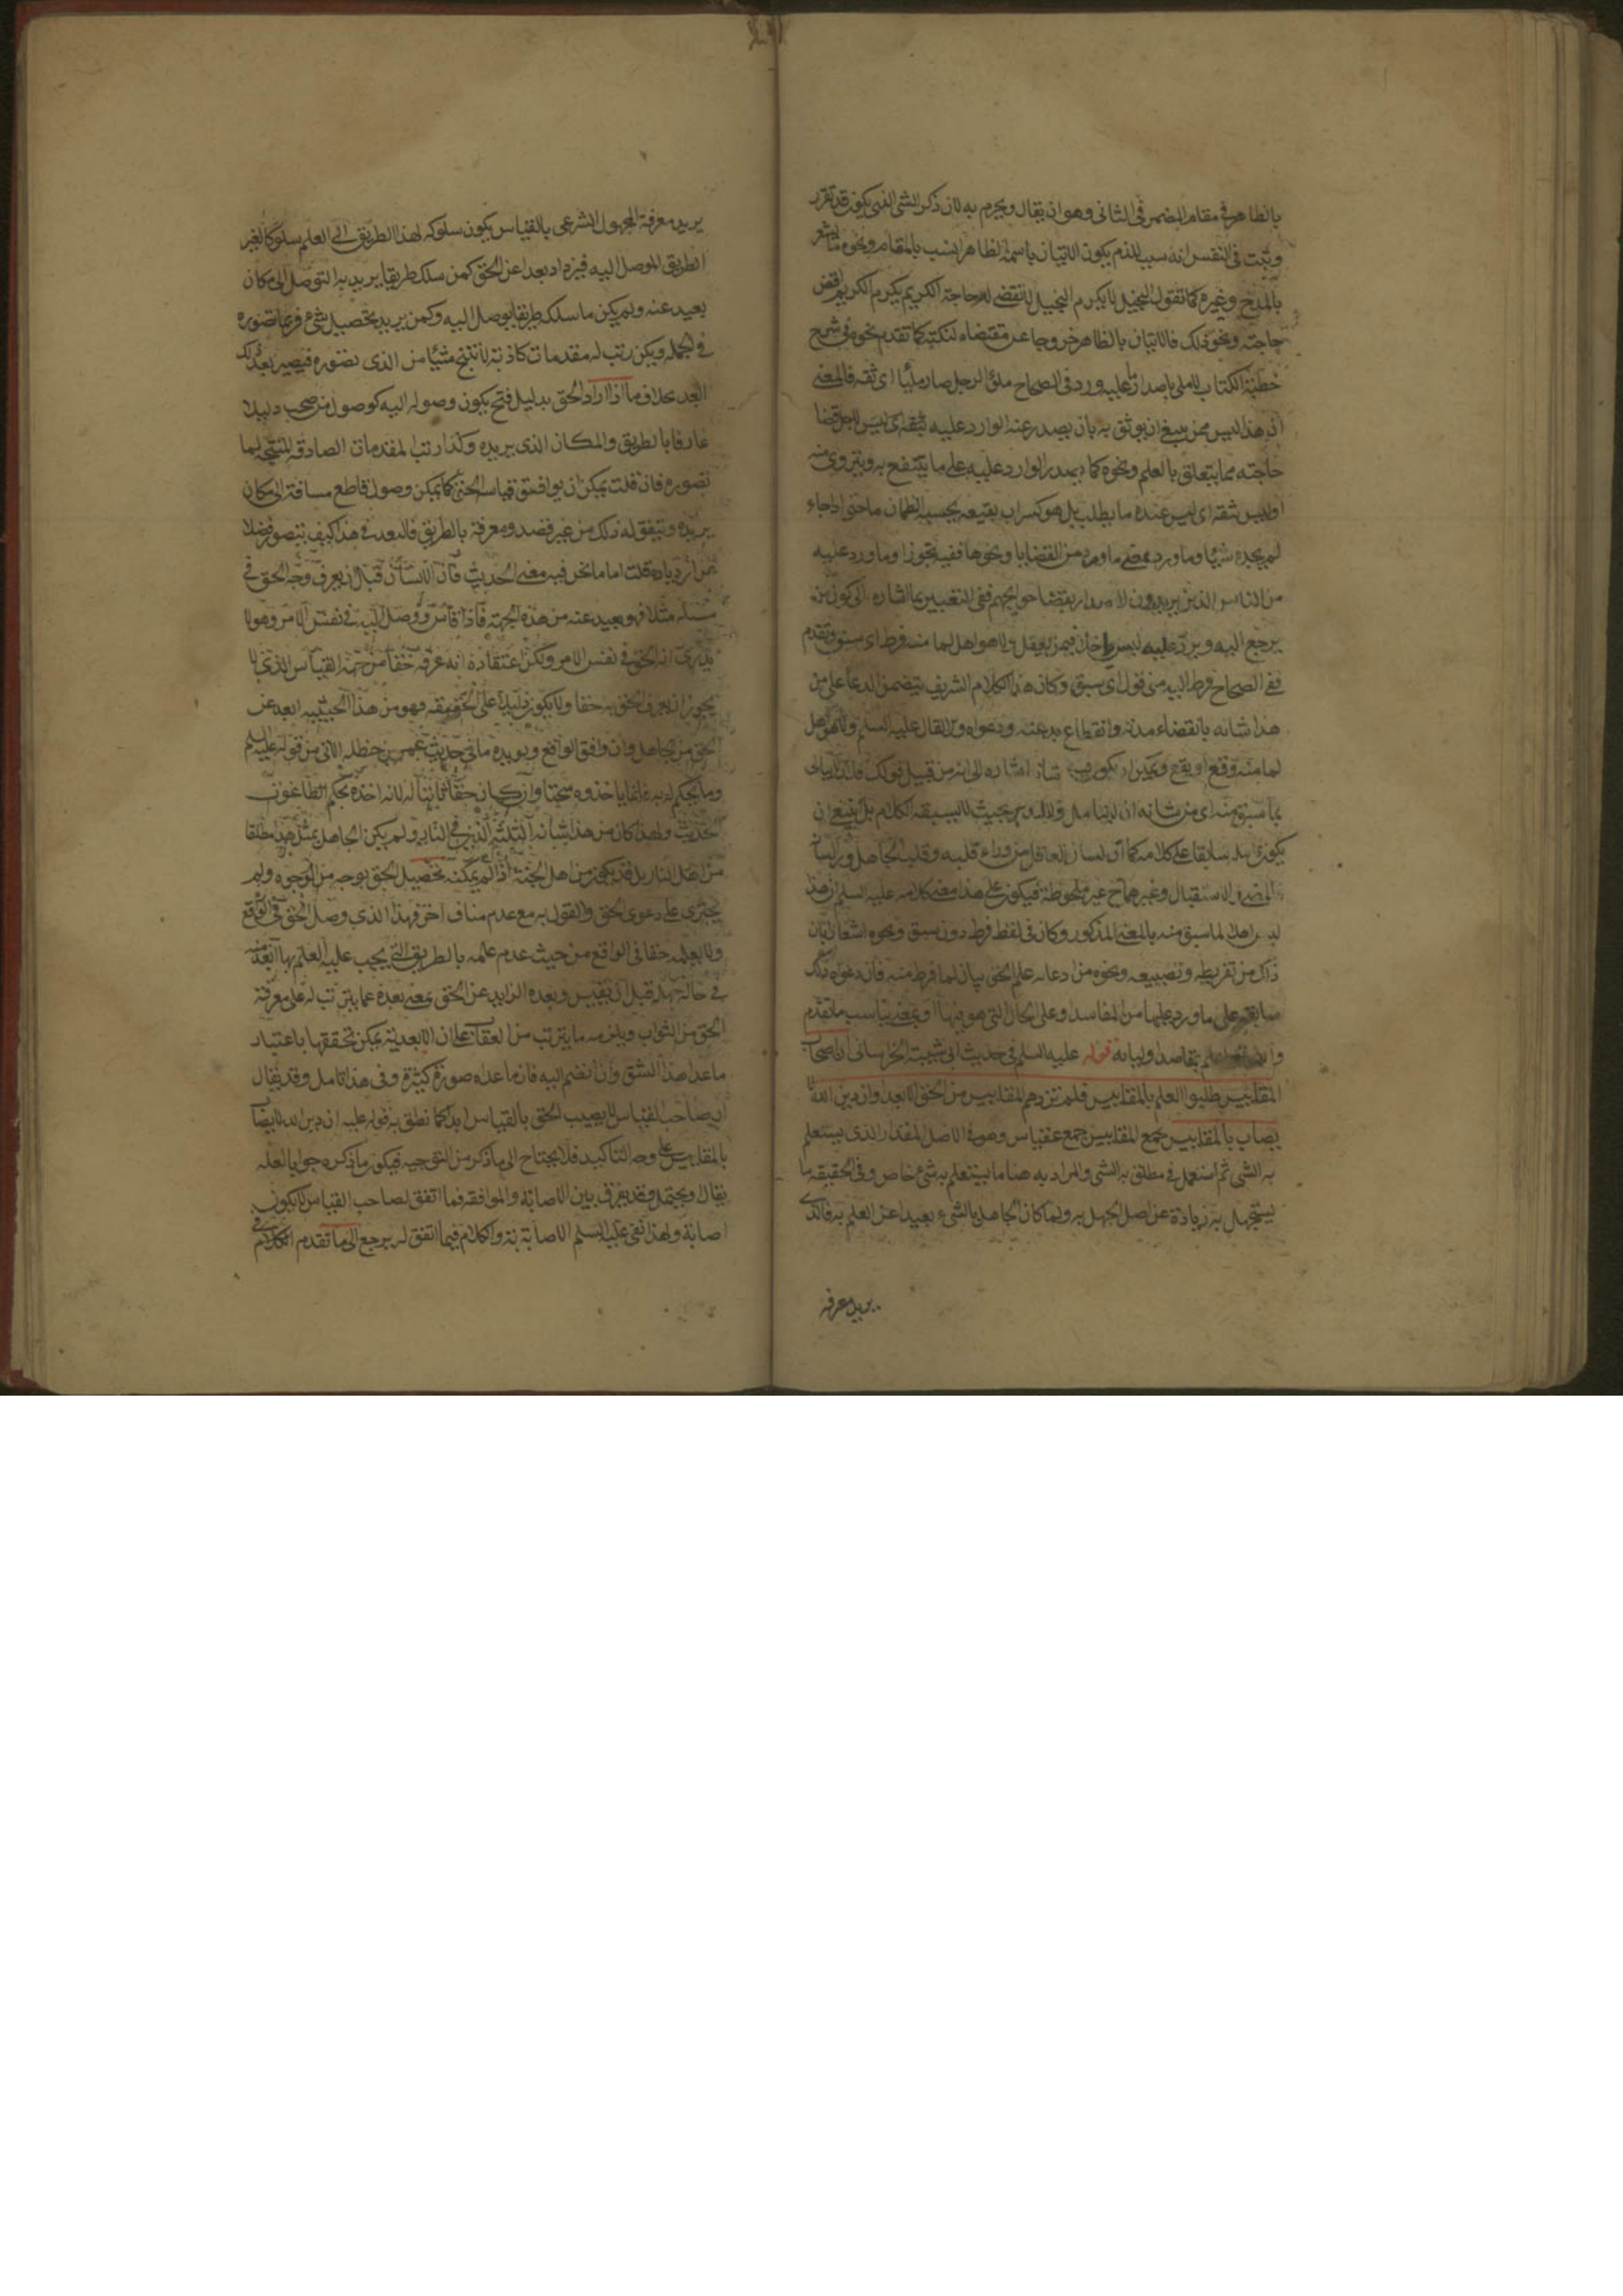 بالظاهر في مقام المضمر في الثاني وهو ان يقال ويجرم به لان ذكر الشي الذي يكون قد تقرر
وثبت في النفس انه سبب للذم يكون الاتيان باسمه الظاهر انسب بالمقام ونحوه ما يشعر
بالمدح وغيره كما تقول البخيل لا يكرم البخيل لا تقضى له حاجة الكريم يكرم الكريم اقض
حاجته ونحو ذلك فالاتيان بالظاهر خروجا عن مقتضاه لنكتة كما تقدم نحوه في شرح
خطبة الكتاب لا ملي باصدار ما عليه ورد في الصحاح ملؤ الرجل صار مليا اي ثقة فالمعنى
ان هذا ليس ممن ينبغي ان يوثق به بان يصدر عنه الوارد عليه بثقة اي ليس اهل قضا
حاجته مما يتعلق بالعلم ونحوه كما يصدر الوارد عليه على ما ينتفع به ويتروى منه
او ليس ثقة اي ليس عنده ما يطلب بل هو كسراب بقيعة يحسبه الظمان ما حتى اذا جاءه
لم يجده شيئا وما ورد بمعنى ما ورد من القضايا ونحوها ففيه تجوز او ما ورد عليه
من الناس الذين يريدون الاصدار بقضا حوايجهم ففي التعبير بما اشارة الى كون من
يرجع اليه ويرد عليه ليس داخلا فيمن يعقل ولا هو اهل لما منه فرط اي سبق وتقدم
ففي الصحاح فرط اليه مني قول اي سبق وكان هذا الكلام الشريف يتضمن الدعا على من
هذا شانه بانقضاء مدته وانقطاع بدعته ودعواه
لما منه وقع او يقع ويمكن ان يكون
بما سبق منه اي من شانه ان بحيث لا يسبقه الكلام بل ينبغي ان
يكون سابقا على كلامه كما ان لسان العاقل من وراء قلبه وقلب الجاهل وراء لسانه
والاستقبال وغيرهما ح غير ملحوظة فيكون على هذا معنى كلامه عليه السلم ان هذا
ليس اهلا لما سبق منه بالمعنى المذكور وكان في لفظ فرط دون سبق ونحوه اشعار بان
ذلك من تفريطه وتضييعه ونحوه من ادعائه علم الحق بيان لما فرط منه فان دعواه تلك
سابقة على ما ورد عليها من المفاسد وعلى الحال التي هو فيها او بمعنى يناسب ما تقدم
والله اعلم بمقاصد اوليائه قوله عليه السلم في حديث ابي شيبة الخراساني ان اصحاب
المقاييس طلبوا العلم بالمقاييس فلم تزدهم المقاييس من الحق الا بعدا وان دين الله لا
يصاب بالمقاييس جمع المقاييس جمع مقياس وهو في الاصل المقدار الذي يستعلم
به الشي ثم استعمل في مطلق به الشي والمراد به هنا ما يستعلم به شي خاص وفي الحقيقة ما
يستجهل به زيادة عن اصل الجهل به ولما كان الجاهل بالشيء بعيدا عن العلم به فالذي
يريد معرفة
يريد معرفة المجهول الشرعي بالقياس يكون سلوكه لهذا الطريق الى العلم سلوكا لغير
الطريق الموصل اليه فيزداد بعدا عن الحق كمن سلك طريقا يريد به التوصل الى مكان
بعيد عنه ولم يكن ما سلكه طريقا يوصل اليه وكمن يريد تحصيل شيء فربما تصوره
في الجملة ويكن رتب له مقدمات كاذبة لا تنتج شيئا من الذي تصوره فيصير بعد ذلك
ابعد بخلاف ما اذا اراد الحق بدليل فتح يكون وصوله اليه كوصول من صحب دليلا
عارفا بالطريق والمكان الذي يريده وكذا رتب المقدمات الصادقة المنتجة لما
تصوره فان قلت يمكن ان يوافق قياسه الحق كما يمكن وصول قاطع مسافة الى مكان
يريده ويتفق له ذلك من غير قصد ومعرفة بالطريق فالبعد في هذا كيف يتصور فضلا
عن ازدياده قلت اما ما نحن فيه معنى الحديث فان الانسان قبل ان يعرف وجه الحق في
مسئلة مثلا فهو بعيد عنه من هذه الجهة فاذا قاس ووصل اليه في نفس الامر وهو لا
يدري انه الحق في نفس الامر ولكن اعتقاده انه عرفه حقا من جهة القياس الذي لا
يجوز ان يعرف الحق به حقا ولا يكون دليلا على الحقيقة فهو من هذه الحيثية ابعد عن
الحق من الجاهل وان وافق الواقع ويؤيده ما في حديث عمر بن حنظلة الاتي من قوله عليه السلم
وما يحكم له به فانما ياخذه سحتا وان كان حقا ثابتا له لانه اخذه بحكم الطاغوت
الحديث ولهذا كان من هذا شانه الذين في النار ولم يكن الجاهل بمثل هذا مطلقا
من اهل النار بل قد يكون من اهل الجنة اذا لم يمكنه تحصيل الحق بوجه من الوجوه ولم
يجترى على دعوى الحق والقول به مع عدم مناف اخر فهذا الذي وصل الحق في الواقع
ولا يعلمه حقا في الواقع من حيث عدم علمه بالطريق التي يجب عليه العلم بها ابعد منه
في حالة جهله قبل ان يقيس وبعده الزايد عن الحق بمعنى بعده عما يترتب له على معرفة
الحق من الثواب ويلزمه ما يترتب من العقاب على ان الابعدية يمكن تحققها باعتبار
ما عدا هذا الشق وان انضم اليه فان ما عداه صورة كثيرة وفي هذا تامل وقد يقال
ان صاحب القياس لا يصيب الحق بالقياس ابدا كما نطق به قوله عليه ان دين الله لا يصاب
بالمقاييس على وجه التاكيد فلا يحتاج الى ما ذكر من التوجيه فيكون ما ذكره جوابا لعله
يقال ويحتمل وقد يفرق بين الاصابة والموافقة فما اتفق لصاحب القياس لا يكون
اصابة ولهذا نفى عليه السلم الاصابة به والكلام فيما اتفق له يرجع الى ما تقدم الكلام في